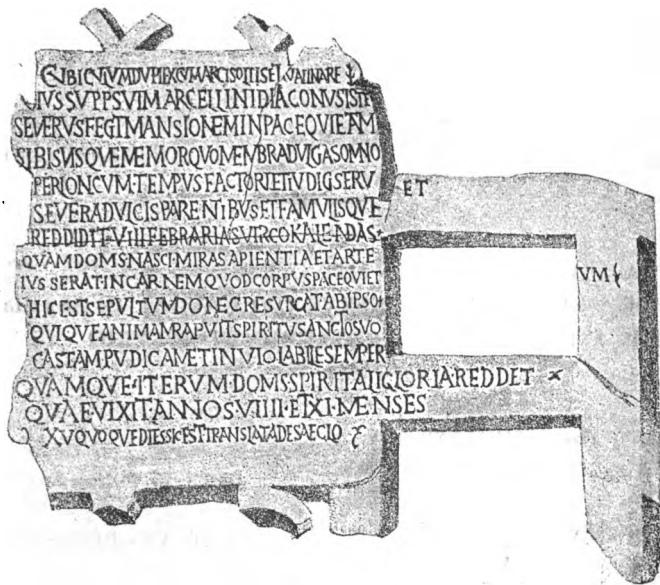 CUBICULUM DUPLEX CUM ARCISOLIIS ET LUMINARE
IUSSU PP SUI MARCELLINI DIACONUS ISTE
SEVERUS FECIT MANSIONEM IN PACE QUIETAM
SIBI SUISQUE MEMOR QUO MEMBRA DULCIA SOMNO
PER LONGUM TEMPUS FACTORI ET IUDICI SERV ET
SEVERA DULCIS PARENTIBUS ET FAMULISQUE
REDDIDIT VIII FEBRARIAS VIRGO KALENDAS
QUAM DOMS NASCI MIRA SAPIENTIA ET ARTE
IUSSERAT IN CARNEM QUOD CORPUS PACE QUIET UM
HIC EST SEPULTUM DONEC RESURGAT AB IPSO
QUIQUE ANIMAM RAPUIT SPIRITU SANCTO SUO
CASTAM PUDICAM ET INVIOLABILE SEMPER
QUAMQUE ITERUM DOMS SPIRITALI GLORIA REDDET
QUAE VIXIT ANNOS VIIII ET XI MENSES
XV QUOQUE DIES SIC EST TRANSLATA DE SAECLO